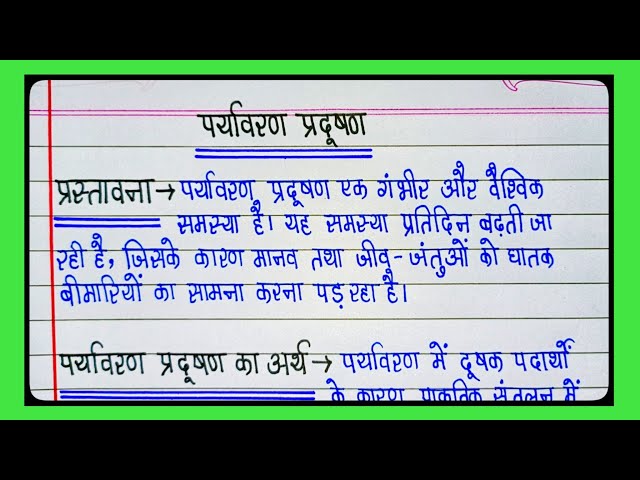 पर्यावरण प्रदूषण
प्रस्तावना → पर्यावरण प्रदूषण एक गंभीर और वैश्विक
समस्या है। यह समस्या प्रतिदिन बढ़ती जा
रही है, जिसके कारण मानव तथा जीव-जंतुओं को घातक
बीमारियों का सामना करना पड़ रहा है।
पर्यावरण प्रदूषण का अर्थ → पर्यावरण में दूषक पदार्थों
के कारण प्राकृतिक संतुलन में